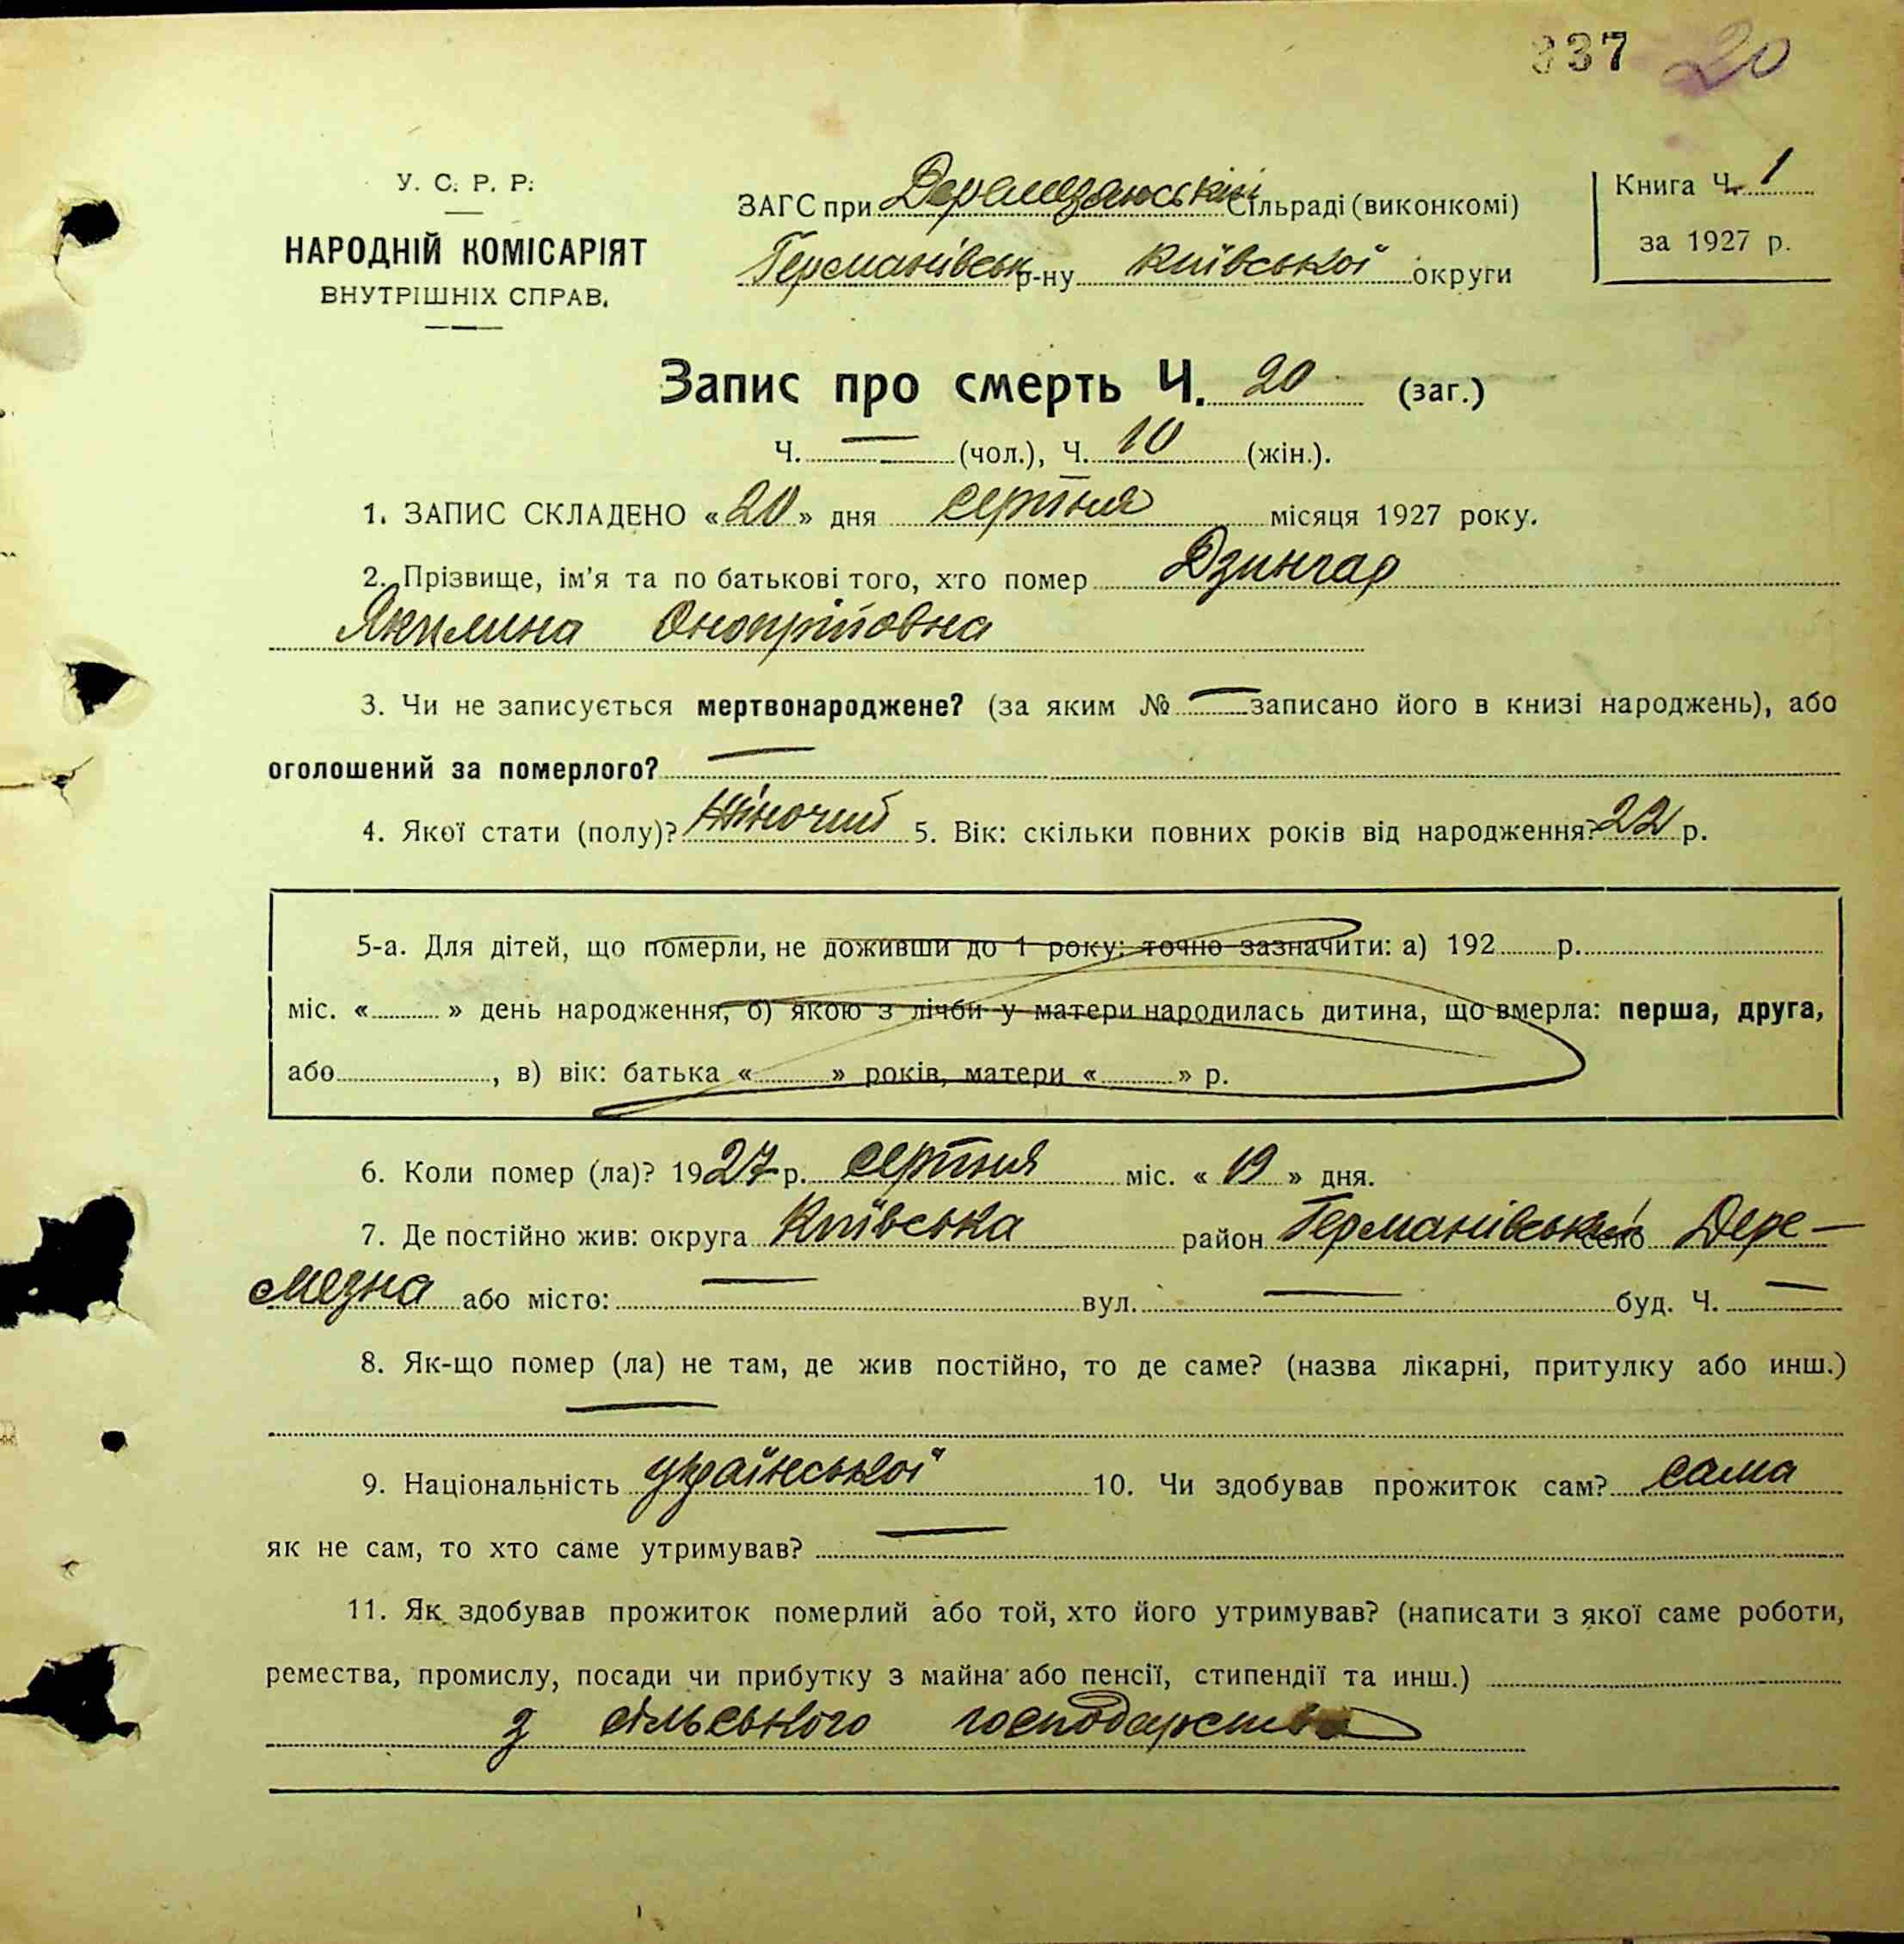 337 20
У. С. Р. Р.
НАРОДНІЙ КОМІСАРІЯТ
ВНУТРІШНІХ СПРАВ.
ЗАГС при Деремезянській Сільраді (виконкомі)
Германівськ р-ну Київської округи
Книга Ч. 1
за 1927 р.
Запис про смерть Ч. 20 (заг.)
Ч. — (чол.), Ч. 10 (жін.).
1. ЗАПИС СКЛАДЕНО «20» дня серпня місяця 1927 року.
2. Прізвище, ім'я та по батькові того, хто помер Дзингар
Якилина Оноприїовна
3. Чи не записується мертвонароджене? (за яким № — записано його в книзі народжень), або
оголошений за померлого? —
4. Якої стати (полу)? Жіночий 5. Вік: скільки повних років від народження? 22 р.
5-а. Для дітей, що померли, не доживши до 1 року: точно зазначити: а) 192 р.
міс. « » день народження, б) якою з лічби у матери народилась дитина, що вмерла: перша, друга,
або , в) вік: батька « » років, матери « » р.
6. Коли помер (ла)? 1927 р. серпня міс. «19» дня.
7. Де постійно жив: округа Київська район Германівський село Дере-
мезна або місто: — вул. — буд. Ч. —
8. Як-що помер (ла) не там, де жив постійно, то де саме? (назва лікарні, притулку або инш.)
—
9. Національність української 10. Чи здобував прожиток сам? сама
як не сам, то хто саме утримував? —
11. Як здобував прожиток померлий або той, хто його утримував? (написати з якої саме роботи,
ремества, промислу, посади чи прибутку з майна або пенсії, стипендії та инш.)
з сільського господарства